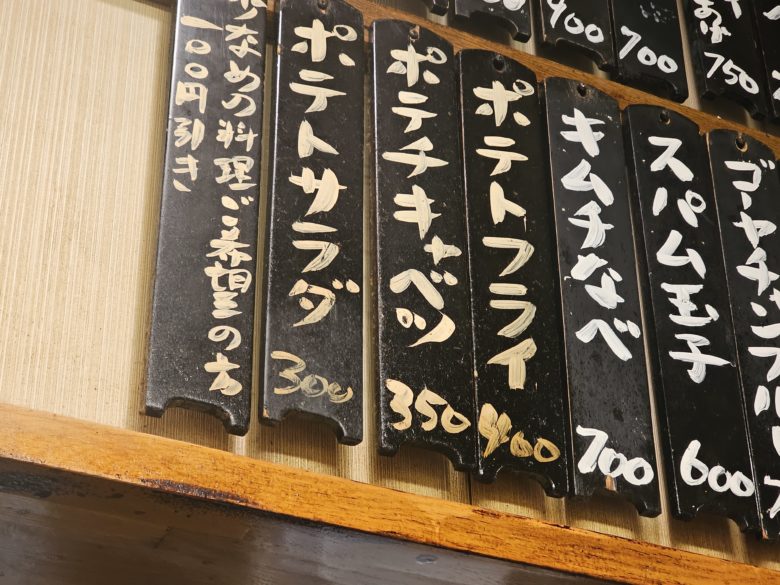 少なめの料理ご希望の方
一〇〇円引き
ポテトサラダ
300
ポテチキャベツ
350
ポテトフライ
400
キムチなべ
700
スパム玉子
600
ゴーヤチャンプル
400
700
750